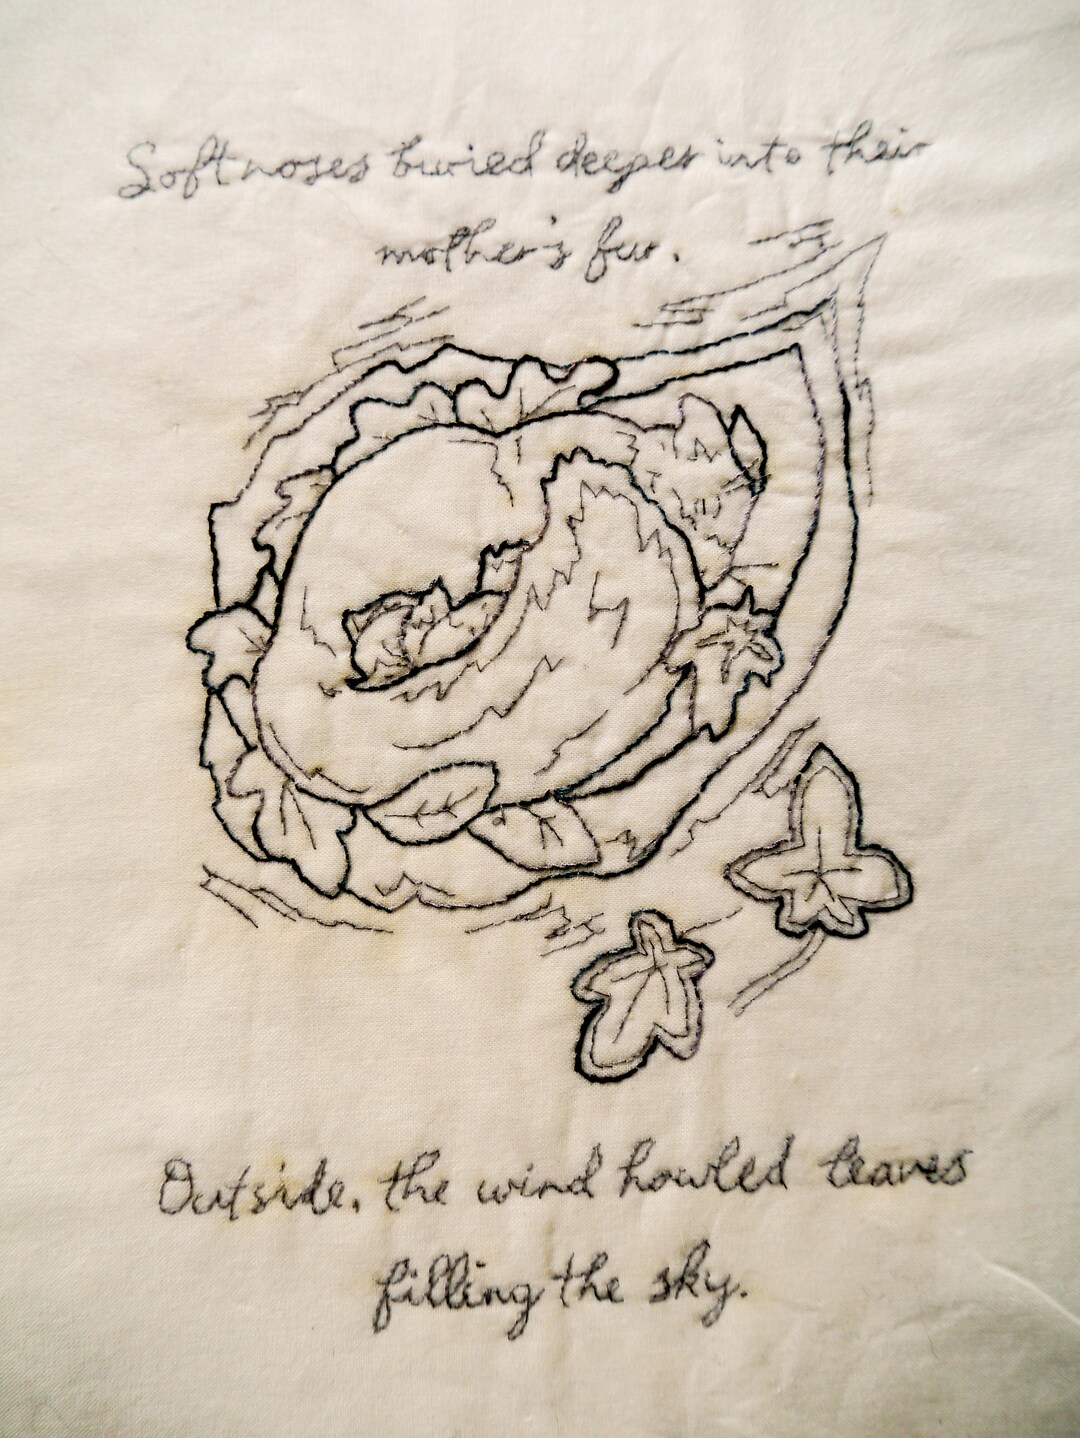 Soft noses buried deeper into their
mother's fur.
Outside, the wind howled leaves
filling the sky.